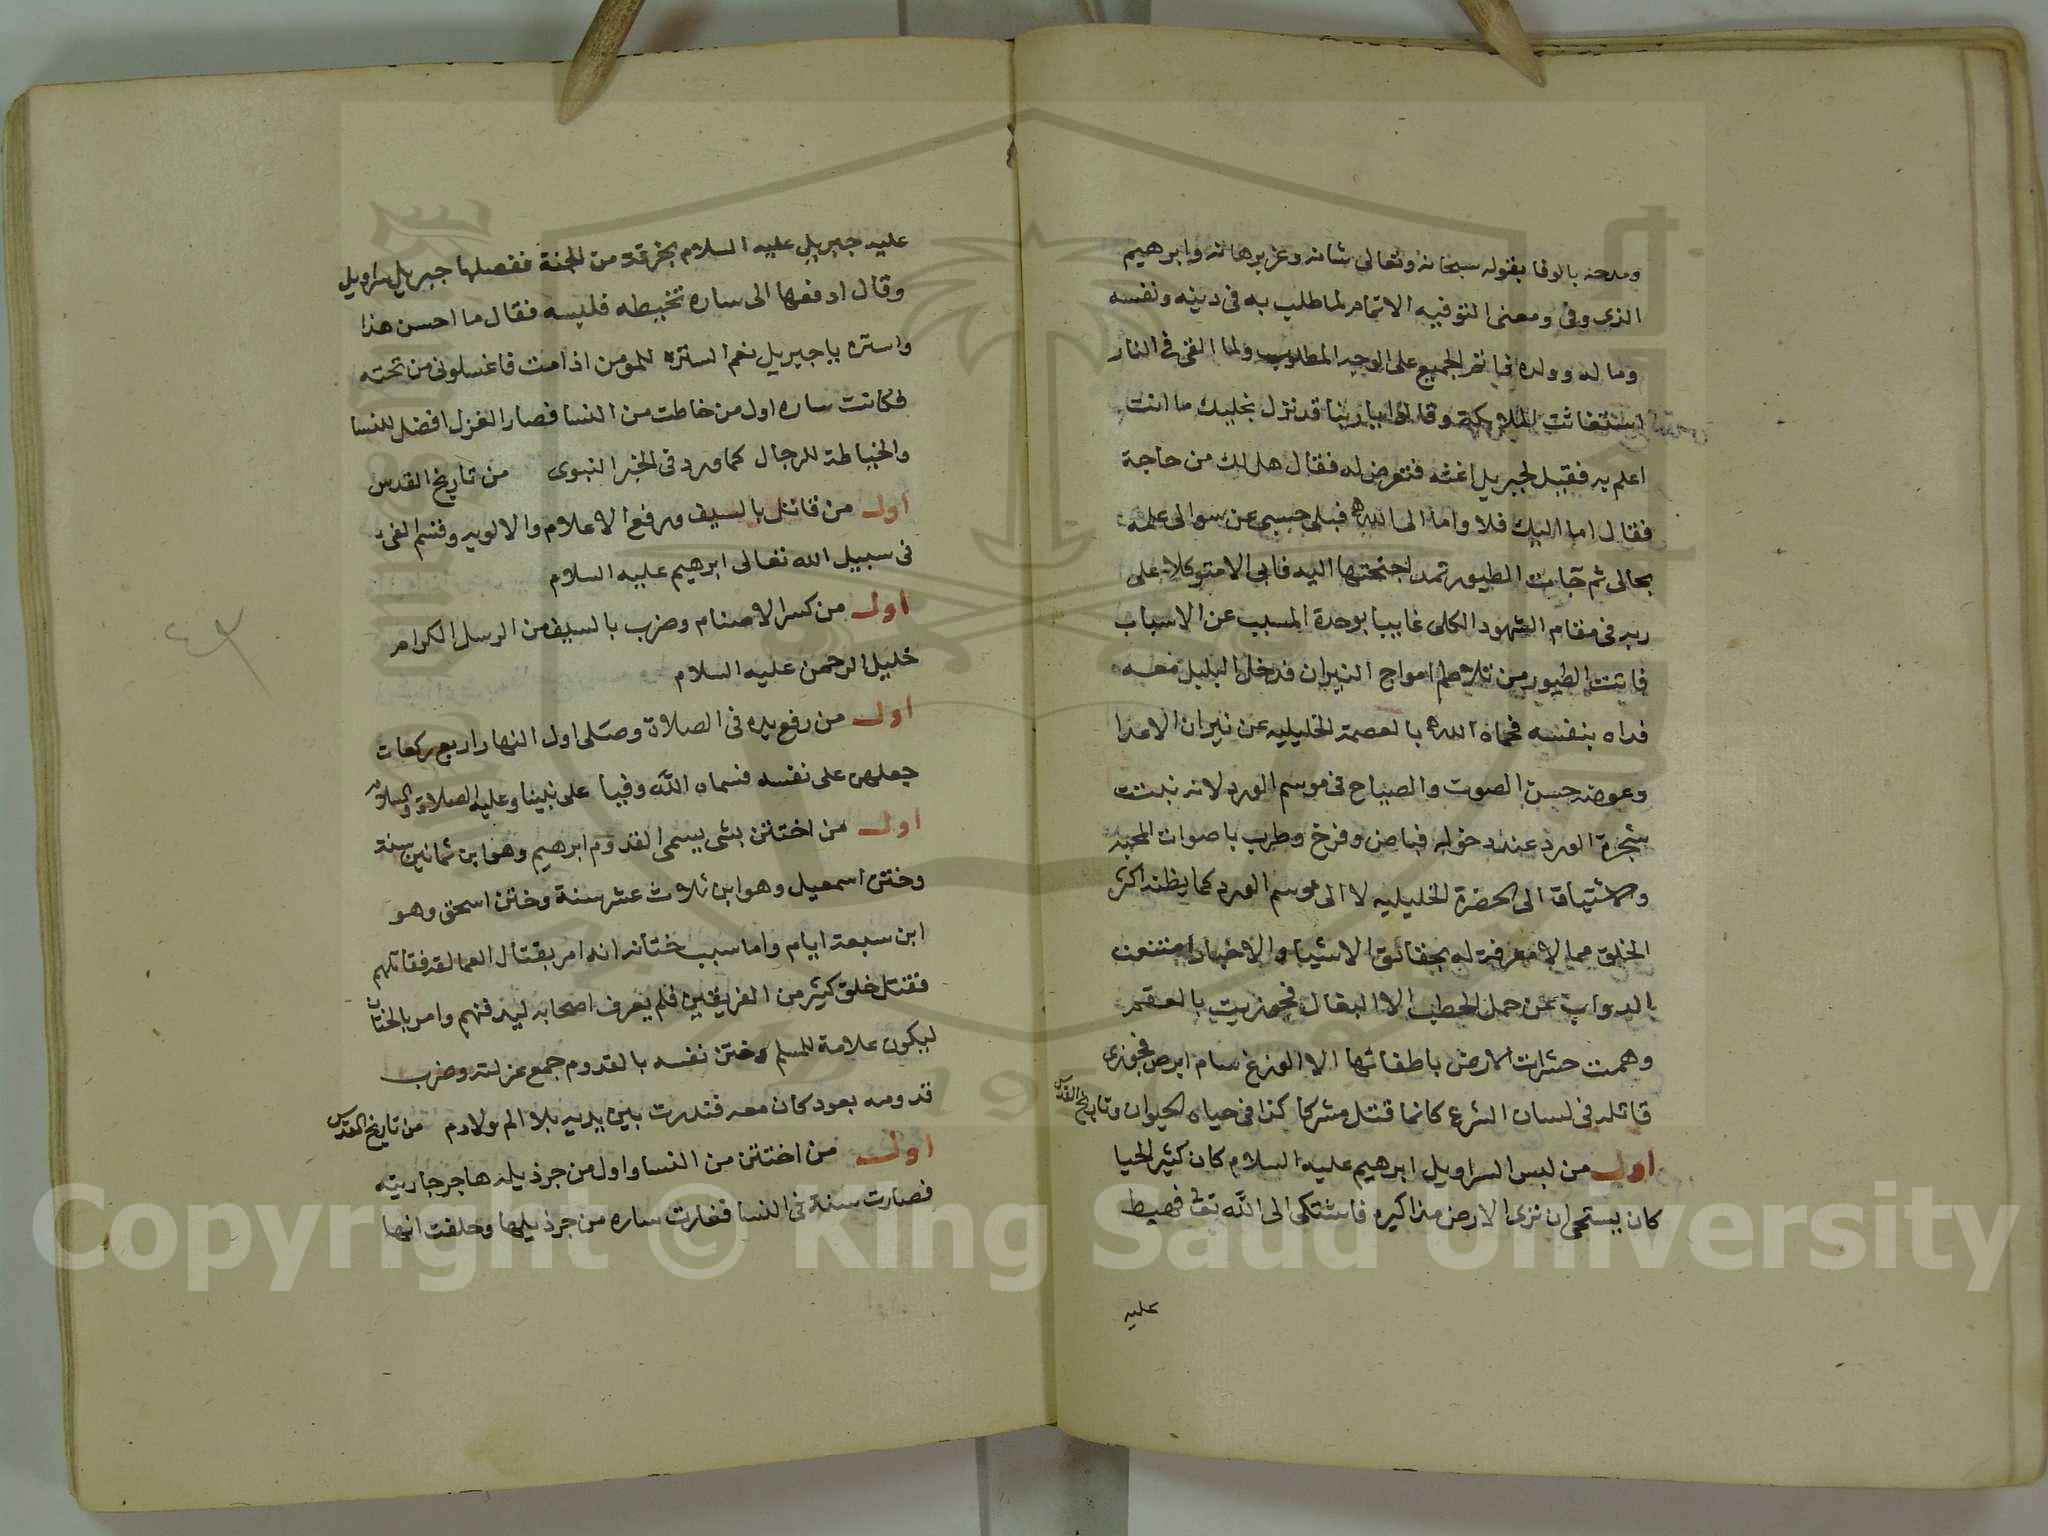 ومدحه بالوفا بقوله سبحانه وتعالى شانه وعز برهانه وابرهيم
الذى وفى ومعنى التوفيه الاتمام لما طلب به فى دينه ونفسه
وماله وولده فاتم الجميع على الوجه المطلوب ولما القى فى النار
استغاثت الملائكة وقالوا يا ربنا قد نزل بخليلك ما انت
اعلم به فقيل لجبريل اغثه فتعرض له فقال هل لك من حاجة
فقال اما اليك فلا واما الى الله فبلى حسبى عن سوالى علمه
بحالى ثم جات الطيور تمد اجنحتها اليه فابى الا متوكلا على
ربه فى مقام الشهود الكلى غايبا بوحدة المسبب عن الاسباب
فاتت الطيور من تلاطم امواج النيران فدخل البلبل معه
فداه بنفسه فحماه الله بالعصمة الخليليه عن نيران الاعدا
وعوضه حسن الصوت والصياح فى موسم الورد لانه نبتت
شجرة الورد عند دخوله فباض وفرخ وطرب باصوات المحبه
والاشتياق الى الحضرة الخليليه لا الى موسم الورد كما يظنه اكثر
الخلق مما لا معرفة له بحقائق الاشيا والاخبار امتنعت
الدواب عن حمل الحطب الا البغال فجوزيت بالعقم
وهمت حشرات الارض باطفائها الا الوزغ سام ابرص فجوزى
قاتله فى لسان الشرع كانما قتل مشركا كذا فى حياه الحيوان وتاريخ القدس
اول من لبس السراويل ابرهيم عليه السلام كان كثير الحيا
كان يستحى ان ترى الارض مذاكيره فاشتكى الى الله تعا فهبط
عليه
عليه جبريل عليه السلام بخرقة من الجنة ففصلها جبريل سراويل
وقال ادفعها الى ساره تخيطه فلبسه فقال ما احسن هذا
واستره يا جبريل نعم الستره للمومن اذا مت فاغسلونى من تحته
فكانت ساره اول من خاطت من النسا فصار الغزل افضل للنسا
والخياطة للرجال كما ورد فى الخبر النبوى من تاريخ القدس
اول من قاتل بالسيف ورفع الاعلام والالويه وقسم الفئ
فى سبيل الله تعالى ابرهيم عليه السلام
اول من كسر الاصنام وضرب بالسيف من الرسل الكرام
خليل الرحمن عليه السلام
اول من رفع يده فى الصلاة وصلى اول النهار اربع ركعات
جعلهن على نفسه فسماه الله وفيا على نبينا وعليه الصلاة والسلام
اول من اختتن بشى يسمى القدوم ابرهيم وهو ابن ثمانين سنة
وختن اسمعيل وهو ابن ثلاث عشر سنة وختن اسحق وهو
ابن سبعة ايام واما سبب ختانه انه امر بقتال العمالقه فقاتلهم
فقتل خلق كثير من الفريقين فلم يعرف اصحابه ليدفنهم وامر بالختان
ليكون علامة للمسلم وختن نفسه بالقدوم جمع عزلته وضرب
قدومه بعود كان معه فندرت بين يديه بلا الم ولا دم من تاريخ القدس
اول من اختتن من النسا واول من جر ذيله هاجر جاريته
فصارت سنة فى النسا فغارت ساره من جر ذيلها وحلفت انها
٤٣
Copyright © King Saud University